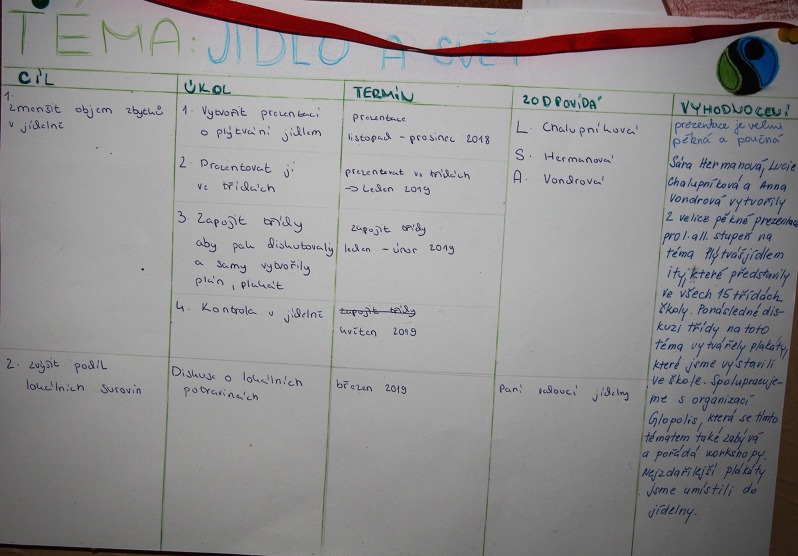 TÉMA: JÍDLO A SVĚT
CÍL
1.
zmenšit objem zbytků
v jídelně
2. zvýšit podíl
lokálních surovin
ÚKOL
1. Vytvořit prezentaci
o plýtvání jídlem
2. Prezentovat ji
ve třídách
3 Zapojit třídy
aby pak diskutovaly
a samy vytvořily
plán, plakát
4. Kontrola v jídelně
Diskuse o lokálních
potravinách
TERMÍN
prezentace
listopad - prosinec 2018
prezentovat ve třídách
→ Leden 2019
zapojit třídy
leden - únor 2019
zapojit třídy
květen 2019
březen 2019
ZODPOVÍDÁ
L. Chalupníková
S. Hermanová
A. Vondrová
Paní vedoucí jídelny
VYHODNOCENÍ
prezentace je velmi
pěkná a poučná
Sára Hermanová, Lucie
Chalupníková a Anna
Vondrová vytvořily
2 velice pěkné prezentace
pro I. a II. stupeň na
téma Plýtváš jídlem
i ty, které představily
ve všech 15 třídách
školy. Po následné dis-
kuzi třídy na toto
téma vytvářely plakáty,
které jsme vystavili
ve škole. Spolupracuje-
me s organizací
Glopolis, která se tímto
tématem také zabývá
a pořádá workshopy.
Nejzdařilejší plakáty
jsme umístili do
jídelny.